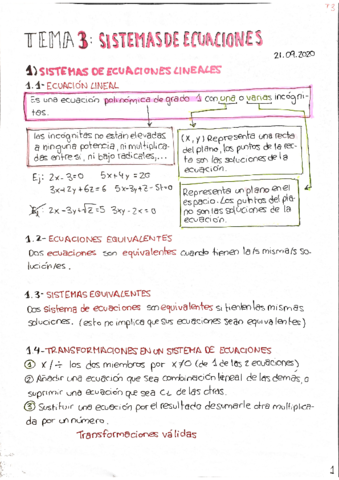 T3
TEMA 3: SISTEMAS DE ECUACIONES
21.09.2020
1) SISTEMAS DE ECUACIONES LINEALES
1.1- ECUACIÓN LINEAL
Es una ecuación polinómica de grado 1 con una o varias incógni-
tas.
las incógnitas no están elevadas
a ninguna potencia, ni multiplica-
das entre sí, ni bajo radicales,...
(x,y) Representa una recta
del plano, los puntos de la rec-
ta son las soluciones de la
ecuación.
Ej: 2x-3=0 5x+4y=20
3x+2y+6z=6 5x-3y+z-5t=0
Ej: 2x-3y+√z=5 3xy-2x=0
Representa un plano en el
espacio. Los puntos del pla-
no son las soluciones de la
ecuación.
1.2- ECUACIONES EQUIVALENTES
Dos ecuaciones son equivalentes cuando tienen la/s misma/s so-
lución/es.
1.3- SISTEMAS EQUIVALENTES
Dos sistema de ecuaciones son equivalentes si tienen las mismas
soluciones. (esto no implica que sus ecuaciones sean equivalentes)
1.4- TRANSFORMACIONES EN UN SISTEMA DE ECUACIONES
① x/÷ los dos miembros por x≠0 (de 1 de las 2 ecuaciones)
② Añadir una ecuación que sea combinación lineal de las demás, o
suprimir una ecuación que sea CL de las otras.
③ Sustituir una ecuación por el resultado de sumarle otra multiplica-
da por un número.
Transformaciones válidas
1